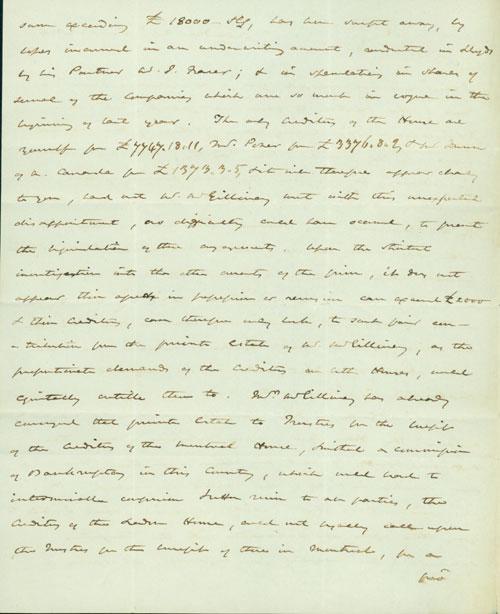 sum exceeding £ 18000 Stg, has been swept away, by
losses incurred in an underwriting account, conducted in Lloyds
by his Partner S. Fraser; & in speculations in shares of
several of the Companies which are so much in vogue in the
beginning of last year. The only Creditors of the House are
yourself for £7747.18.11, Mr. for £3376.8.2, & Mr
of U. Canada for £1373.3.5, & it will therefore appear clearly
to you, had not Mr. McGillivray met with this unexpected
disappointment, no difficulty could have occurred, to prevent
the liquidation of these arrangements. Upon the strictest
investigation into the other assets of the firm, it does not
appear their assets in possession or reversion can exceed £2000
& their Creditors, can therefore only look, to such fair con-
tribution from the private Estate of Mr. McGillivray, as the
proportionate demands of the Creditors on both Houses, would
equitably entitle them to. Mr. McGillivray has already
conveyed that private Estate to Trustees for the benefit
of the Creditors of the Montreal House, & without a commission
of Bankruptcy in this Country, which would lead to
interminable confusion & utter ruin to all parties, the
Creditors of the London House, could not legally call upon
the Trustees for the benefit of those in Montreal, for a